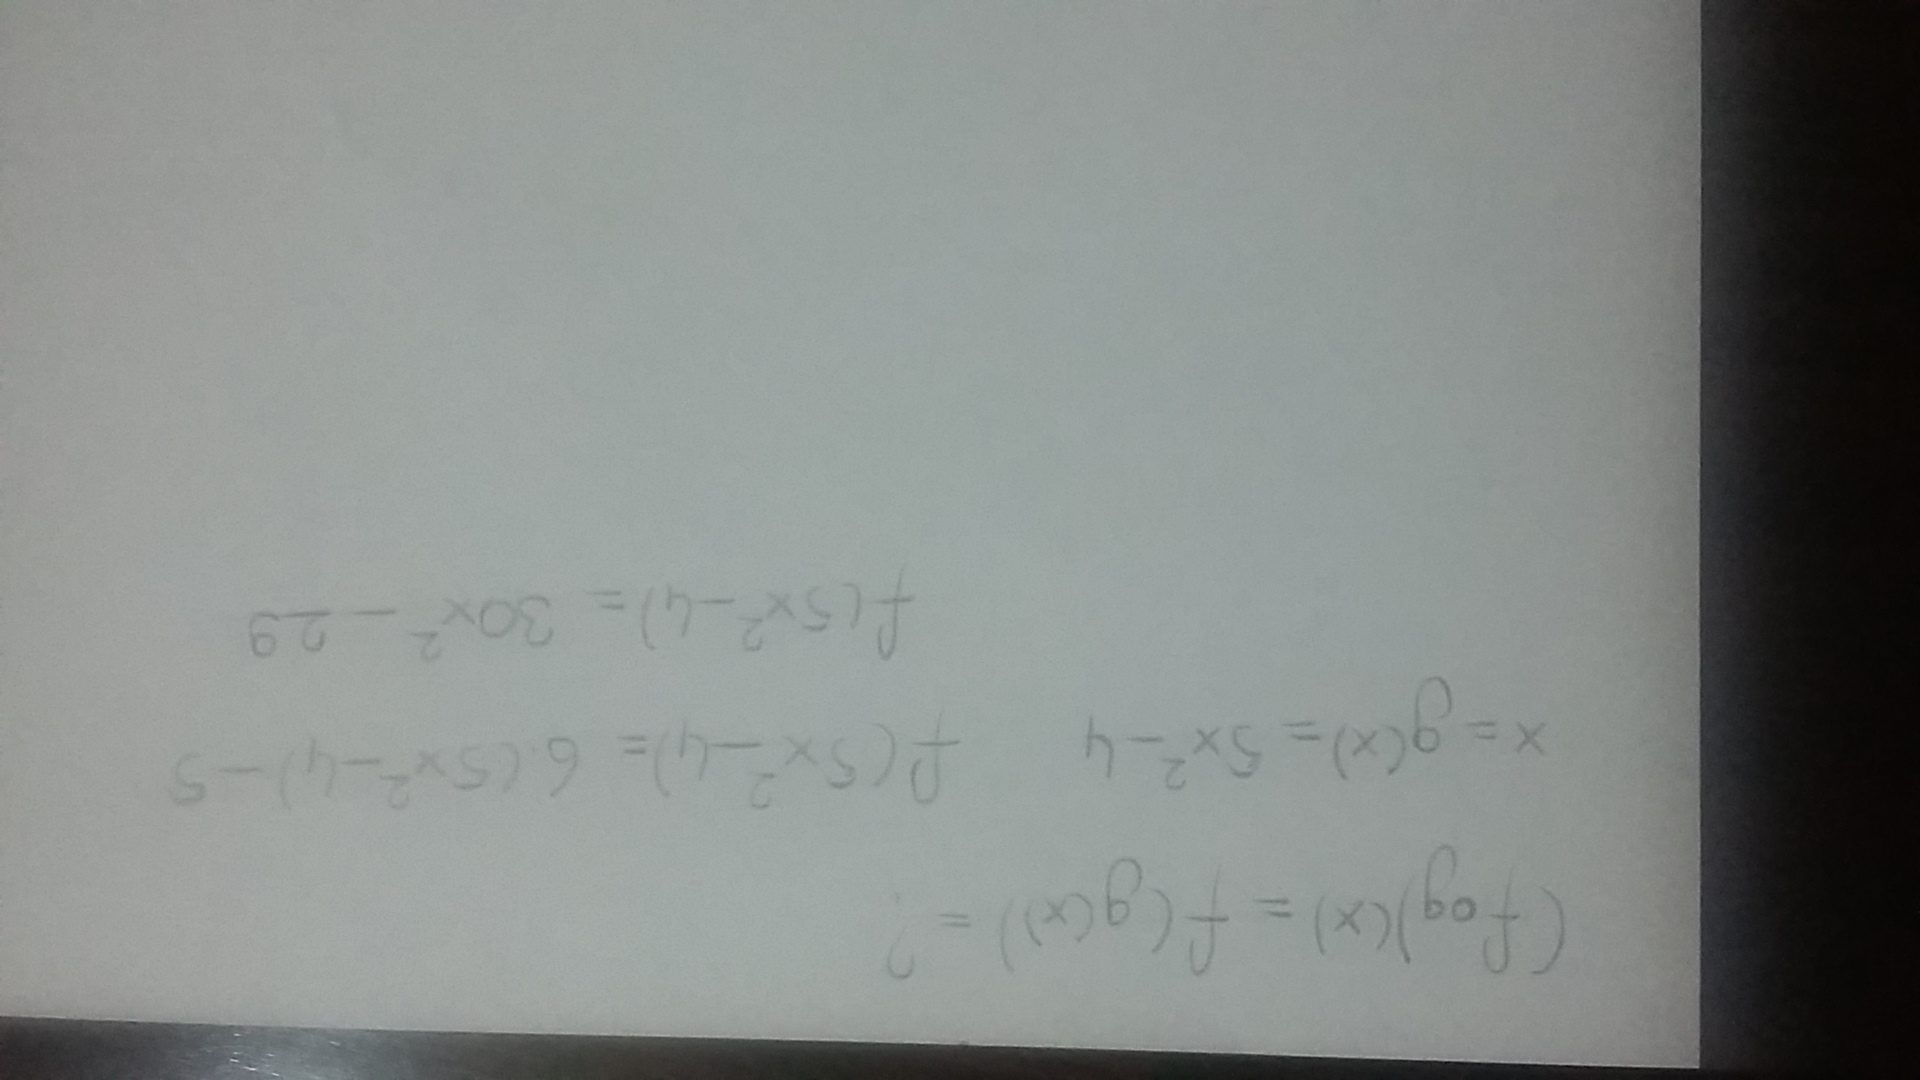 (fog)(x) = f(g(x)) = ?
x = g(x) = 5x² - 4 f(5x² - 4) = 6(5x² - 4) - 5
f(5x² - 4) = 30x² - 29